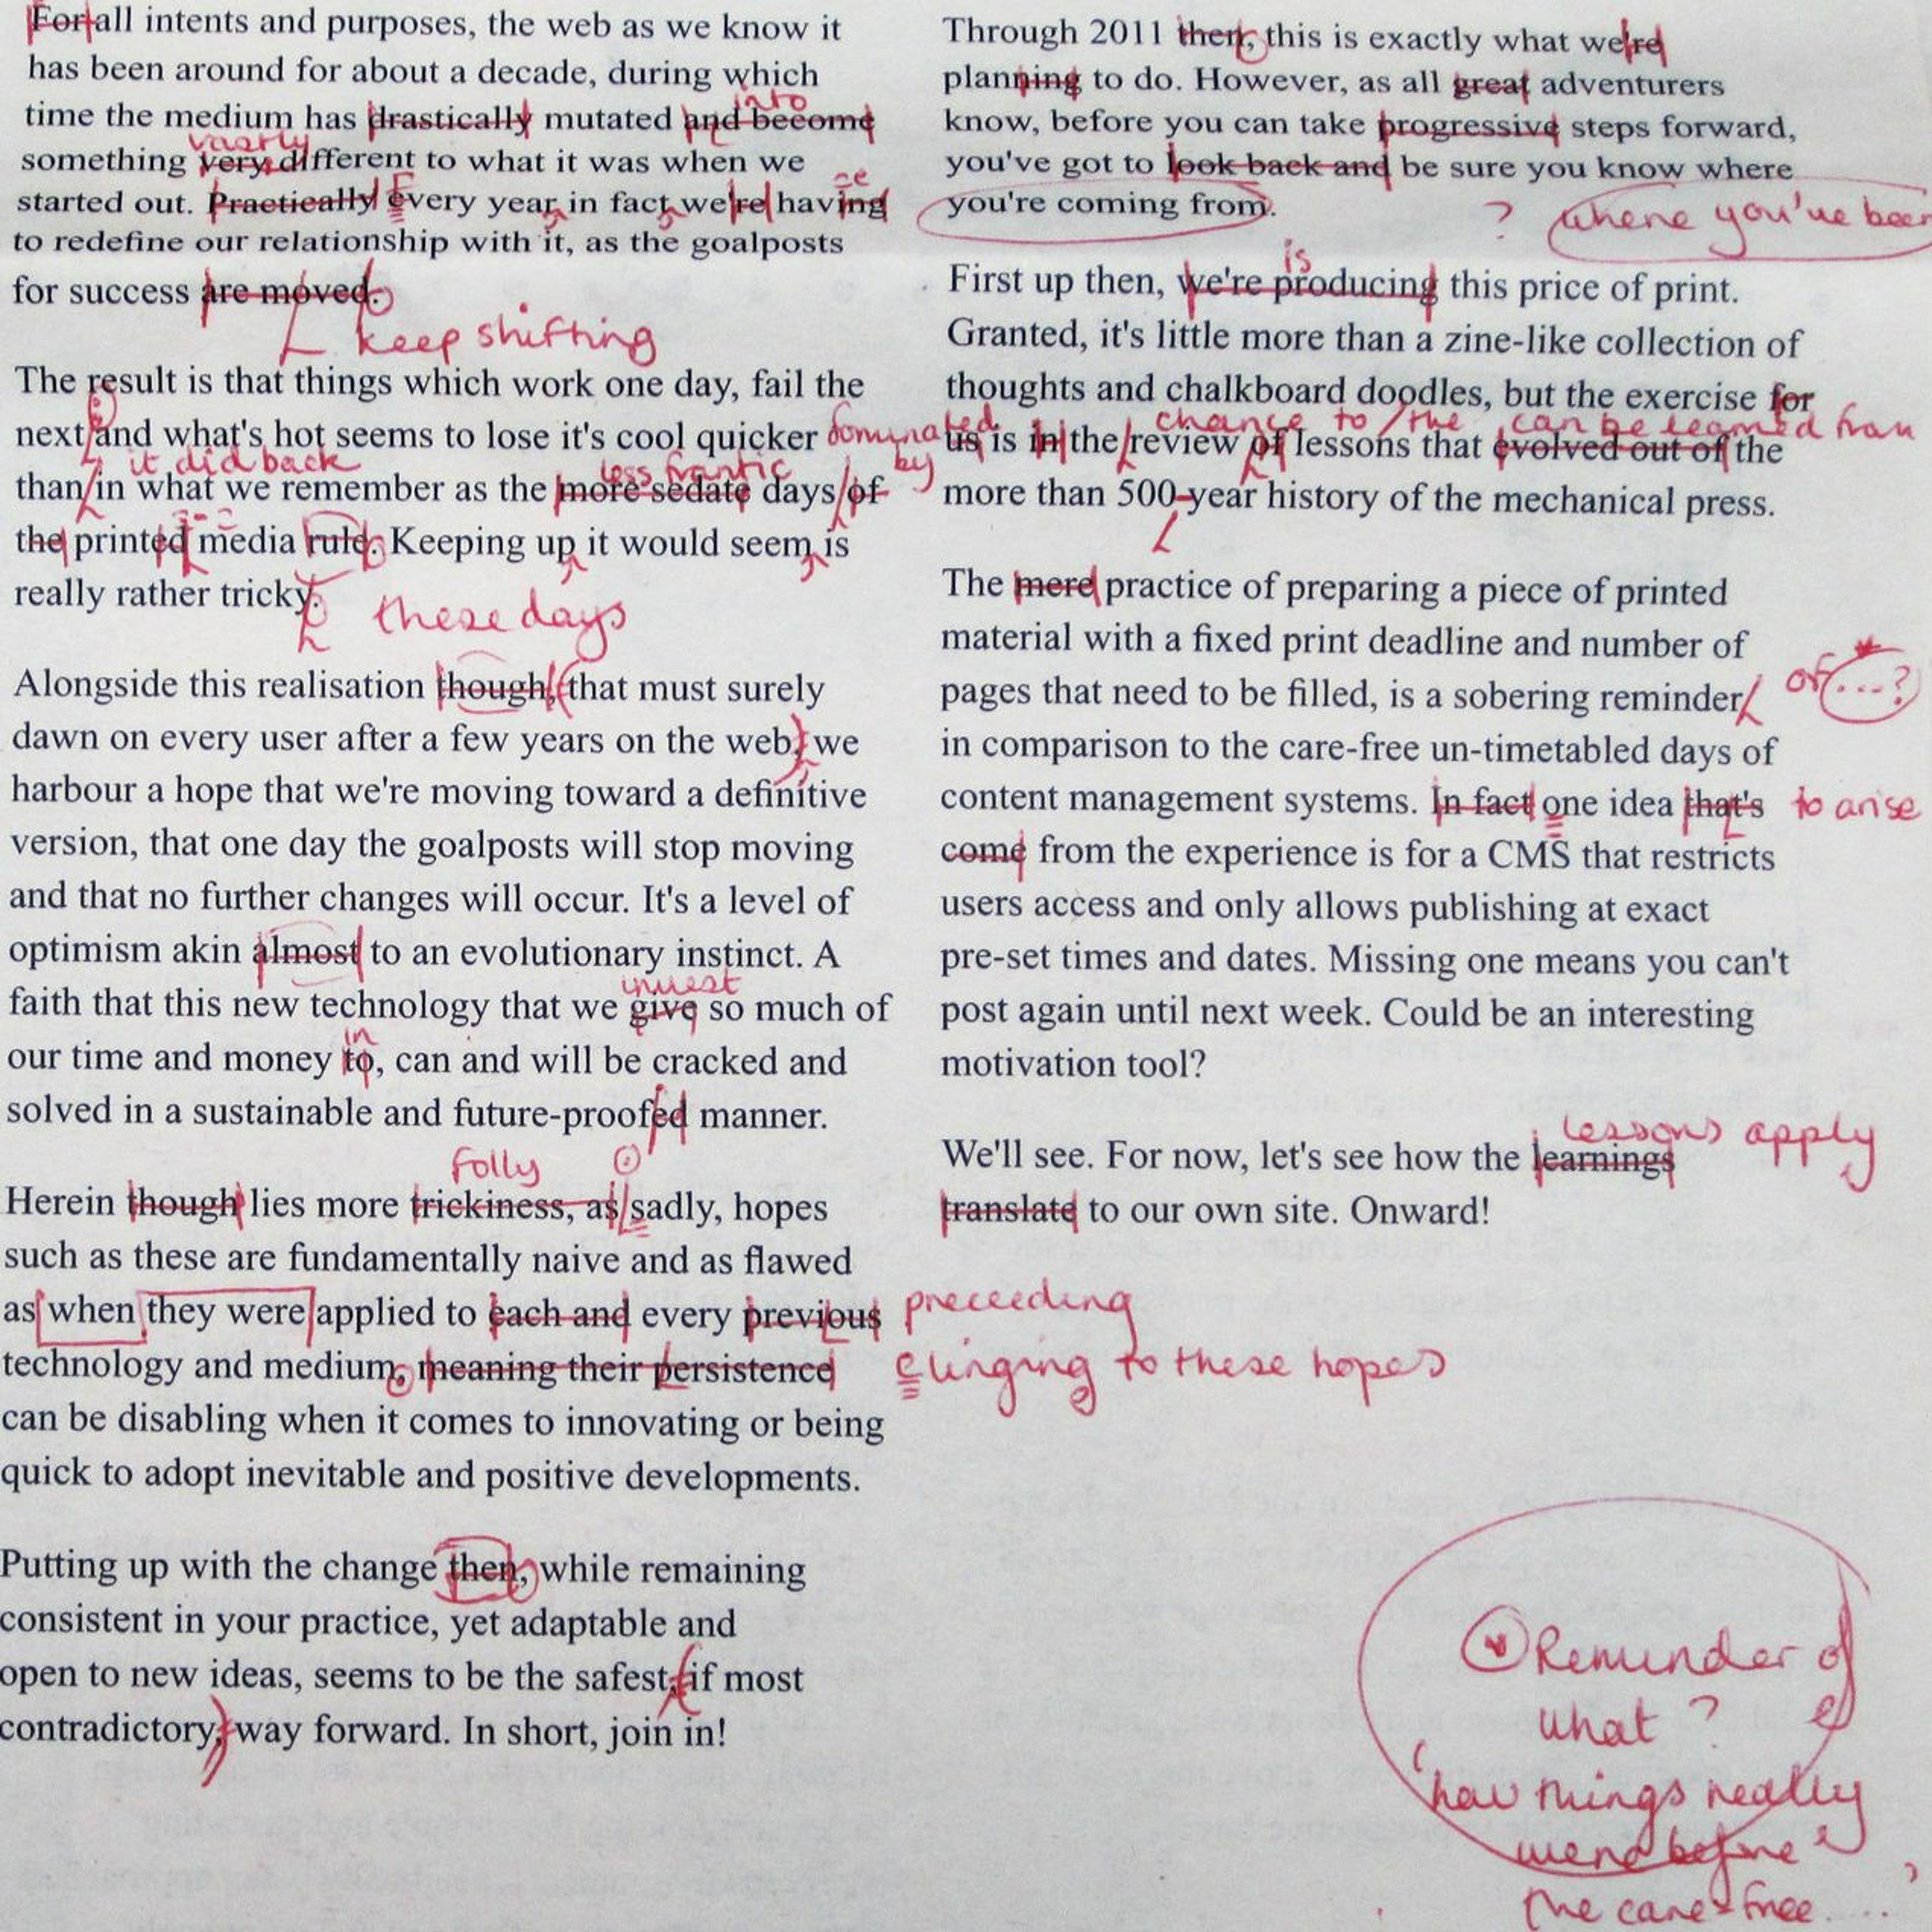 For all intents and purposes, the web as we know it
has been around for about a decade, during which
into
time the medium has drastically mutated and become
vastly
something very different to what it was when we
E ve
started out. Practically every year in fact we're having
to redefine our relationship with it, as the goalposts
for success are moved.
keep shifting
The result is that things which work one day, fail the
next and what's hot seems to lose it's cool quicker dominated by
it did back less frantic
than in what we remember as the more sedate days of
the printed media rule. Keeping up it would seem is
really rather tricky.
these days
Alongside this realisation though, that must surely
dawn on every user after a few years on the web, we
harbour a hope that we're moving toward a definitive
version, that one day the goalposts will stop moving
and that no further changes will occur. It's a level of
optimism akin almost to an evolutionary instinct. A
invest
faith that this new technology that we give so much of
in
our time and money to, can and will be cracked and
solved in a sustainable and future-proofed manner.
folly
Herein though lies more trickiness, as sadly, hopes
such as these are fundamentally naive and as flawed
as when they were applied to each and every previous preceeding
technology and medium, meaning their persistence clinging to these hopes
can be disabling when it comes to innovating or being
quick to adopt inevitable and positive developments.
Putting up with the change then, while remaining
consistent in your practice, yet adaptable and
open to new ideas, seems to be the safest, if most
contradictory, way forward. In short, join in!
Through 2011 then, this is exactly what we're
planning to do. However, as all great adventurers
know, before you can take progressive steps forward,
you've got to look back and be sure you know where
you're coming from. ? where you've been
is
First up then, we're producing this price of print.
Granted, it's little more than a zine-like collection of
thoughts and chalkboard doodles, but the exercise for
chance to / the can be learned from
us is in the review of lessons that evolved out of the
more than 500-year history of the mechanical press.
The mere practice of preparing a piece of printed
material with a fixed print deadline and number of
pages that need to be filled, is a sobering reminder of ...? *
in comparison to the care-free un-timetabled days of
content management systems. In fact one idea that's to arise
come from the experience is for a CMS that restricts
users access and only allows publishing at exact
pre-set times and dates. Missing one means you can't
post again until next week. Could be an interesting
motivation tool?
lessons apply
We'll see. For now, let's see how the learnings
translate to our own site. Onward!
* Reminder of
what ?
'how things really
were before
the care-free ....'